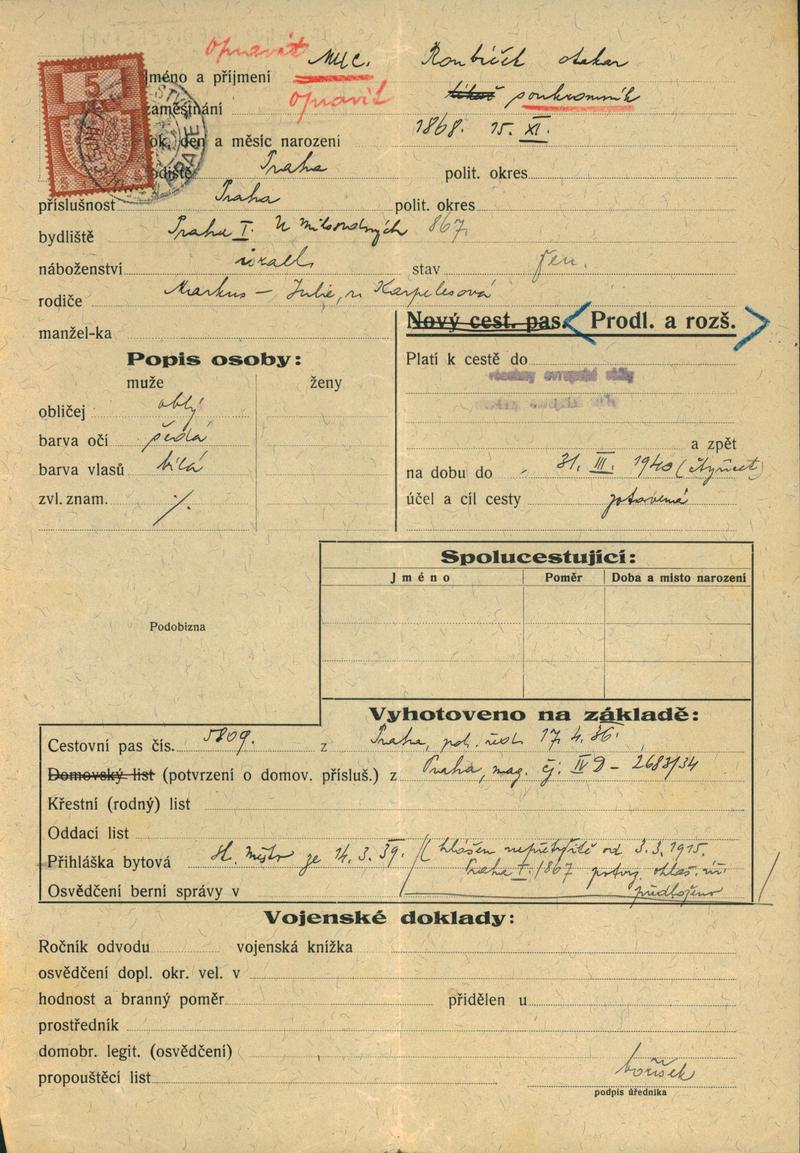 Opravit
KOLEK
5
Jméno a příjmení MUC. Roubíček Otakar
zaměstnání Opravit lékař soukromník
rok, den a měsíc narození 1868. 15. XI.
Praha polit. okres
příslušnost Praha polit. okres
bydliště Praha I. U Milosrdných 867,
náboženství israel. stav žen.
rodiče Markus – Julie, r. Karpelesová
manžel-ka
Nový cest. pas. Prodl. a rozš.
Popis osoby:
muže ženy
obličej oblý
barva očí šedá
barva vlasů bílá
zvl. znam. /.
Platí k cestě do
všechny evropské státy
a zpět
na dobu do 31. III. 1940 (čtyřicet)
účel a cíl cesty
Spolucestující:
Jméno Poměr Doba a místo narození
Podobizna
Vyhotoveno na základě:
Cestovní pas čís. 5809. z Praha, pol. řed. 17. 4. 36.
Domovský list (potvrzení o domov. přísluš.) z Praha, mag. čj. IV D – 2683/34
Křestní (rodný) list
Oddací list
Přihláška bytová ze 14. 3. 39. / hlášen nepřetržitě od 3. 3. 1915.
Praha I./867 potvrz. ohlaš. úř.
Osvědčení berní správy v předloženo
Vojenské doklady:
Ročník odvodu vojenská knížka
osvědčení dopl. okr. vel. v
hodnost a branný poměr přidělen u
prostředník
domobr. legit. (osvědčení)
propouštěcí list
podpis úředníka